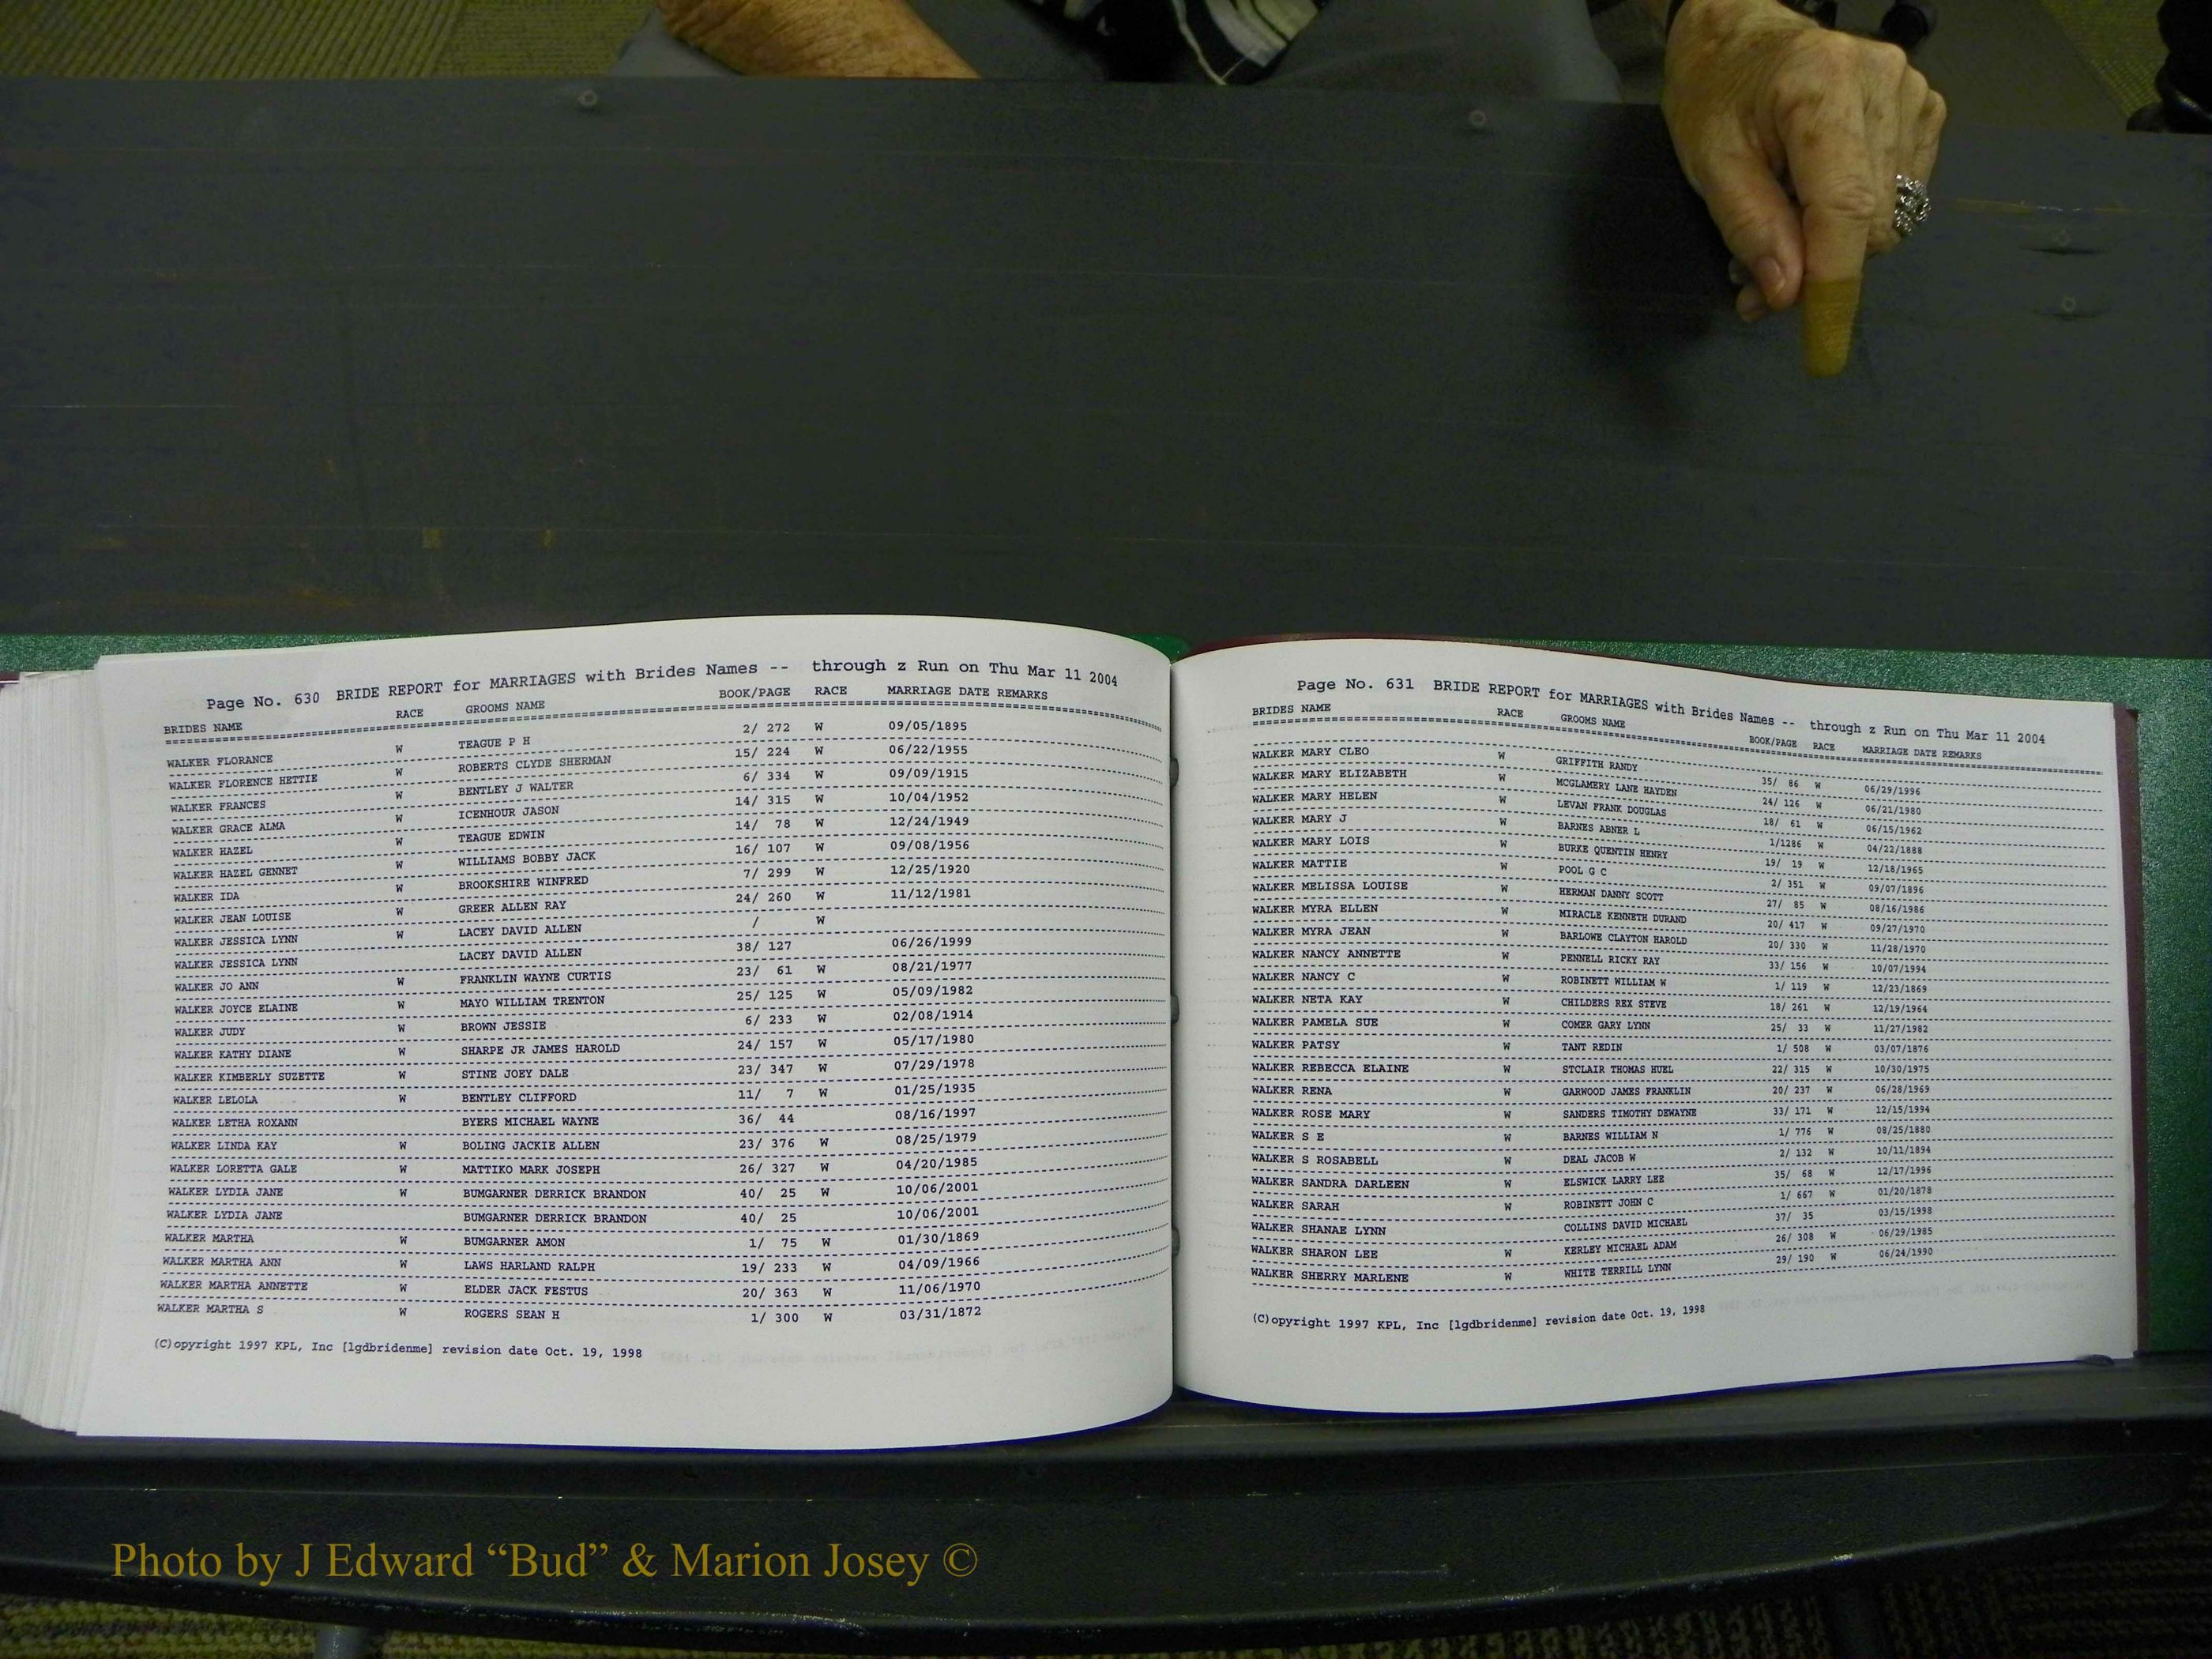 Page No. 630 BRIDE REPORT for MARRIAGES with Brides Names -- through z Run on Thu Mar 11 2004
BRIDES NAME RACE GROOMS NAME BOOK/PAGE RACE MARRIAGE DATE REMARKS
WALKER FLORANCE W TEAGUE P H 2/ 272 W 09/05/1895
WALKER FLORENCE HETTIE W ROBERTS CLYDE SHERMAN 15/ 224 W 06/22/1955
WALKER FRANCES W BENTLEY J WALTER 6/ 334 W 09/09/1915
WALKER GRACE ALMA W ICENHOUR JASON 14/ 315 W 10/04/1952
WALKER HAZEL W TEAGUE EDWIN 14/ 78 W 12/24/1949
WALKER HAZEL GENNET W WILLIAMS BOBBY JACK 16/ 107 W 09/08/1956
WALKER IDA W BROOKSHIRE WINFRED 7/ 299 W 12/25/1920
WALKER JEAN LOUISE W GREER ALLEN RAY 24/ 260 W 11/12/1981
WALKER JESSICA LYNN W LACEY DAVID ALLEN / W
WALKER JESSICA LYNN LACEY DAVID ALLEN 38/ 127 06/26/1999
WALKER JO ANN W FRANKLIN WAYNE CURTIS 23/ 61 W 08/21/1977
WALKER JOYCE ELAINE W MAYO WILLIAM TRENTON 25/ 125 W 05/09/1982
WALKER JUDY W BROWN JESSIE 6/ 233 W 02/08/1914
WALKER KATHY DIANE W SHARPE JR JAMES HAROLD 24/ 157 W 05/17/1980
WALKER KIMBERLY SUZETTE W STINE JOEY DALE 23/ 347 W 07/29/1978
WALKER LELOLA W BENTLEY CLIFFORD 11/ 7 W 01/25/1935
WALKER LETHA ROXANN BYERS MICHAEL WAYNE 36/ 44 08/16/1997
WALKER LINDA KAY W BOLING JACKIE ALLEN 23/ 376 W 08/25/1979
WALKER LORETTA GALE W MATTIKO MARK JOSEPH 26/ 327 W 04/20/1985
WALKER LYDIA JANE W BUMGARNER DERRICK BRANDON 40/ 25 W 10/06/2001
WALKER LYDIA JANE BUMGARNER DERRICK BRANDON 40/ 25 10/06/2001
WALKER MARTHA W BUMGARNER AMON 1/ 75 W 01/30/1869
WALKER MARTHA ANN W LAWS HARLAND RALPH 19/ 233 W 04/09/1966
WALKER MARTHA ANNETTE W ELDER JACK FESTUS 20/ 363 W 11/06/1970
WALKER MARTHA S W ROGERS SEAN H 1/ 300 W 03/31/1872
(C)opyright 1997 KPL, Inc [lgdbridenme] revision date Oct. 19, 1998
Page No. 631 BRIDE REPORT for MARRIAGES with Brides Names -- through z Run on Thu Mar 11 2004
BRIDES NAME RACE GROOMS NAME BOOK/PAGE RACE MARRIAGE DATE REMARKS
WALKER MARY CLEO W GRIFFITH RANDY 35/ 86 W 06/29/1996
WALKER MARY ELIZABETH W MCGLAMERY LANE HAYDEN 24/ 126 W 06/21/1980
WALKER MARY HELEN W LEVAN FRANK DOUGLAS 18/ 61 W 06/15/1962
WALKER MARY J W BARNES ABNER L 1/1286 W 04/22/1888
WALKER MARY LOIS W BURKE QUENTIN HENRY 19/ 19 W 12/18/1965
WALKER MATTIE W POOL G C 2/ 351 W 09/07/1896
WALKER MELISSA LOUISE W HERMAN DANNY SCOTT 27/ 85 W 08/16/1986
WALKER MYRA ELLEN W MIRACLE KENNETH DURAND 20/ 417 W 09/27/1970
WALKER MYRA JEAN W BARLOWE CLAYTON HAROLD 20/ 330 W 11/28/1970
WALKER NANCY ANNETTE W PENNELL RICKY RAY 33/ 156 W 10/07/1994
WALKER NANCY C W ROBINETT WILLIAM W 1/ 119 W 12/23/1869
WALKER NETA KAY W CHILDERS REX STEVE 18/ 261 W 12/19/1964
WALKER PAMELA SUE W COMER GARY LYNN 25/ 33 W 11/27/1982
WALKER PATSY W TANT REDIN 1/ 508 W 03/07/1876
WALKER REBECCA ELAINE W STCLAIR THOMAS HUEL 22/ 315 W 10/30/1975
WALKER RENA W GARWOOD JAMES FRANKLIN 20/ 237 W 06/28/1969
WALKER ROSE MARY W SANDERS TIMOTHY DEWAYNE 33/ 171 W 12/15/1994
WALKER S E W BARNES WILLIAM N 1/ 776 W 08/25/1880
WALKER S ROSABELL W DEAL JACOB W 2/ 132 W 10/11/1894
WALKER SANDRA DARLEEN W ELSWICK LARRY LEE 35/ 68 W 12/17/1996
WALKER SARAH W ROBINETT JOHN C 1/ 667 W 01/20/1878
WALKER SHANAE LYNN COLLINS DAVID MICHAEL 37/ 35 03/15/1998
WALKER SHARON LEE W KERLEY MICHAEL ADAM 26/ 308 W 06/29/1985
WALKER SHERRY MARLENE W WHITE TERRILL LYNN 29/ 190 W 06/24/1990
(C)opyright 1997 KPL, Inc [lgdbridenme] revision date Oct. 19, 1998
Photo by J Edward “Bud” & Marion Josey ©